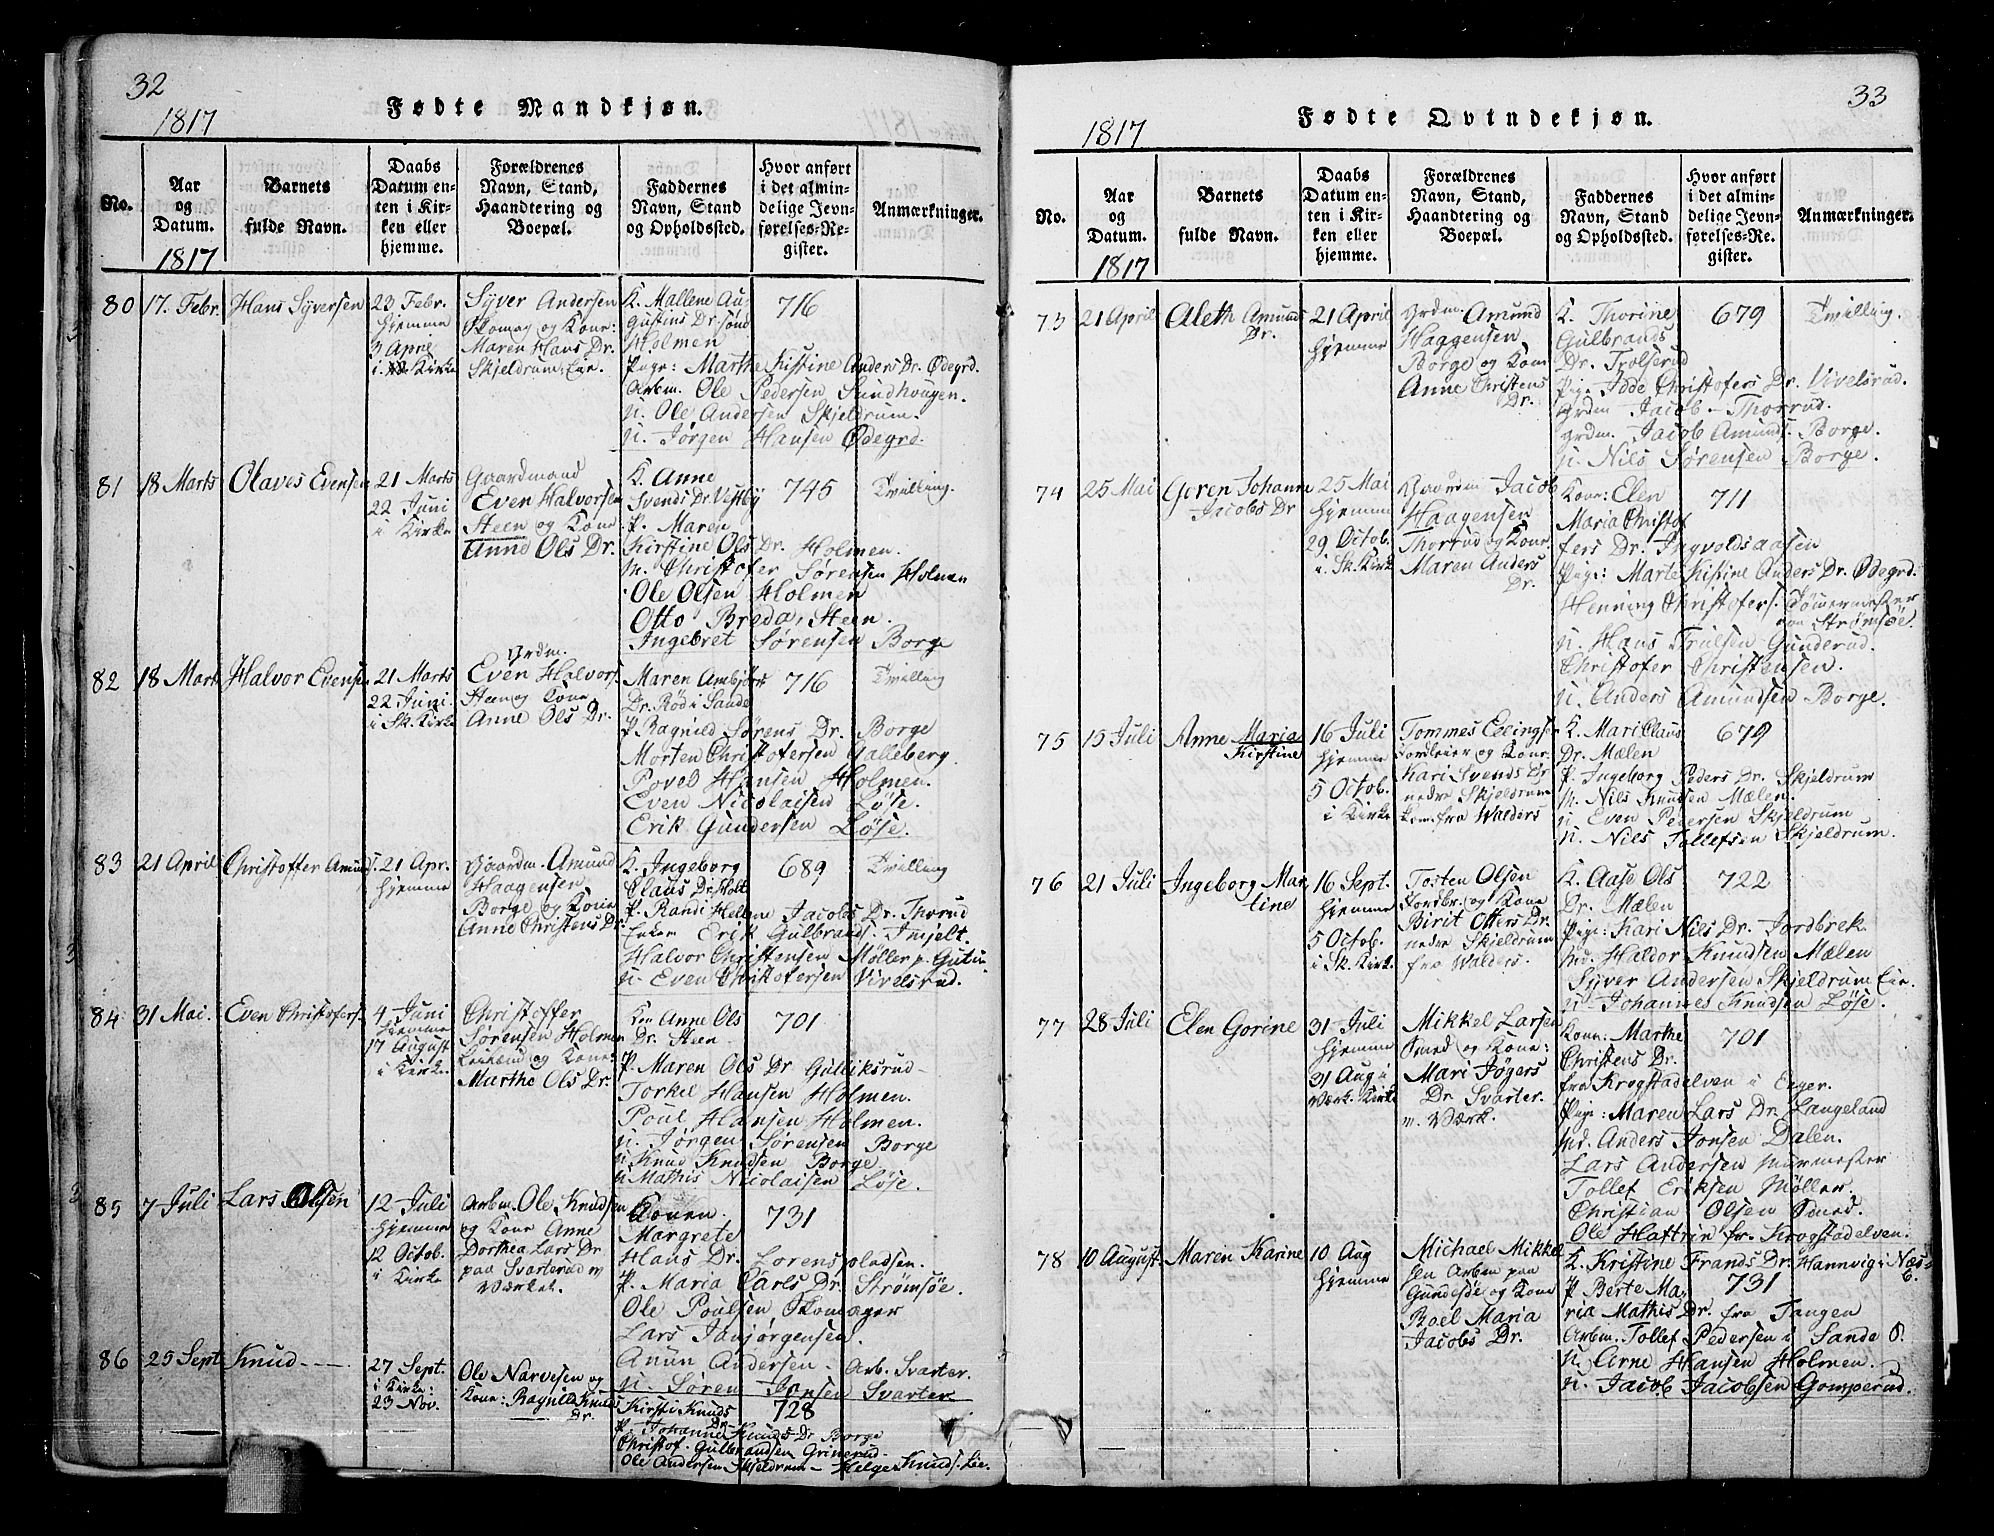 32
1817
Fødte Mandkjøn.
No.
Aar og Datum.
Barnets fulde Navn.
Daabs Datum enten i Kirken eller hjemme.
Forældrenes Navn, Stand, Haandtering og Boepæl.
Faddernes Navn, Stand og Opholdssted.
Hvor anført i det almindelige Jevnførelses-Register.
Anmærkninger.
1817
80
17. Febr.
Hans Syversen
23 Febr.
hjemme
3 April
i Kirke
Syver Andersen
Skomag og Kone:
Maren Hans Dr.
Skjeldrum, Eie.
K. Mallene Au-
gustins Dr. sønd
Holmen
Pige: Marthe Kistine Anders Dr. Ødegrd.
Arbm. Ole Pedersen Sundhougen.
u. Ole Andersen Skjeldrum.
u. Jørgen Hansen Ødegrd.
716
81
18 Marts
Olaves Evensen
21 Marts
22 Juni
i Kirke
Gaardmand
Even Halvorsen
Steen og Kone
Anne Ols Dr.
K. Anne
Svends Dr. Vestby
P. Maren
Kirstine Ols Dr. Holmen.
m. Christofer Sørensen Holmen
Ole Olsen Holmen
Otto Breda, Steen.
Ingebret Sørensen Borge
745
Tvilling.
82
18 Mart
Halvor Evensen
21 Marts
22 Juni.
i Sk. Kirke
Grdm.
Even Halvors.
Steen og Kone
Anne Ols Dr.
Maren Ambjørs
Dr. Rød i Sande
P Ragnild Sørens Dr. Borge
Morten Christofersen Galleberg.
Povel Hansen Holmen.
Even Nicolaisen Løse.
Erik Gundersen Løse.
716
Tvilling
83
21 April
Christoffer Amunds.
21 Apr.
hjemme
Gaardm. Amund
Haagensen
Borge og Kone
Anne Christens Dr.
K. Ingeborg
Claus Dr. Holt
P. Randi Hellene Jacobs Dr. Thorud
Erik Gulbrands. Imjelt.
Halvor Christensen Møller p.
u. Even Christofersen Vivelsrud.
689
Tvilling
84
31 Mai.
Even Christofers.
4 Juni
hjemme
17 August
i Kirke
Christoffer
Sørensen Holmen
og Kone
Marthe Ols Dr.
Kon Anne Ols
Dr. Steen.
P. Maren Ols Dr Gulliksrud
Torkel Hansen Holmen.
Poul Hansen Holmen.
u. Jørgen Sørensen Borge
u. Knud Knudsen Borge.
u. Mathis Nicolaisen Løse.
701
85
7 Juli
Lars Olsen
12 Juli
hjemme
12 Octob.
i Kirke
Arbm. Ole Knudsen
og Kone Anne
Dorthea Lars Dr
paa Svarterud v
Værket.
Konen.
Margrete
Hans Dr. Lorens pladsen.
P. Maria Carls Dr. Strømsøe.
Ole Poulsen Skomager
Lars Janjørgensen.
Anun Andersen Arb. Svarter.
u. Søren Jansen Svarter
731
86
25 Sept
Knud
27 Sept.
i Kirke:
23 Nov.
Ole Narvesen og
Kone: Ragnild Knuds
Dr.
Kirsti Knuds
Dr.
P. Johanne Knuds Dr Borge
Christof. Gulbrandsen Grinerud.
Ole Andersen Skjeldrum Helge Knuds. Lie.
728
33
1817
Fødte Qvindekjøn.
No.
Aar og Datum.
Barnets fulde Navn.
Daabs Datum enten i Kirken eller hjemme.
Forældrenes Navn, Stand, Haandtering og Boepæl.
Faddernes Navn, Stand og Opholdssted.
Hvor anført i det almindelige Jevnførelses-Register.
Anmærkninger.
1817
73
21 April
Aleth Amunds
Dr.
21 April
hjemme
Grdm. Amund
Haggensen
Borge og Kone
Anne Christens
Dr.
K. Thorine
Gulbrands
Dr. Trolsrud
Pig. Idde Christofers Dr. Vivelsrud.
Grdm Jacob Thorrud.
Grdm. Jacob Amunds. Borge.
u. Nils Sørensen Borge.
679
Tvilling.
74
25 Mai
Goren Johanne
Jacobs Dr
25 Mai
hjemme
29 Octob.
i. Sk. Kirk
Gaardm Jacob
Haagensen
Thorrud og Kone.
Maren Anders
Dr.
Kone: Elen
Maria Christof
fers Dr. Ingvoldsaasen
Pige: Marte Kistine Anders Dr. Ødegrd.
Henning Christofers. Tømermester
Strømsøe.
u. Hans Trulsen Gunderud.
Christofer Christensen.
u. Anders Amundsen Borge.
711
75
15 Juli
Anne Maria
Kirstine
16 Juli
hjemme
5 Octob.
i Kirke
Tommes Ellings.
Jordleier og Kone
Kari Svends Dr
nedre Skjeldrum
kom. fra Walders
K. Mari Claus
Dr. Mælen
P. Ingeborg Peders Dr. Skjeldrum
m. Nils Knudsen Mælen.
u Even Pedersen Skjeldrum
u. Nils Tollefsen Skjeldrum.
679
76
21 Juli
Ingeborg Mar-
tine
16 Sept.
hjemme
5 Octob.
i Sk. Kirk.
Tosten Olsen
Jordbr. og Kone
Birit Otters Dr.
nedre Skjeldrum
fra Walders.
K. Aase Ols
Dr. Mælen
Pige: Kari Nils Dr. Jordbrek.
md. Haldor Knudsen Mælen
Syver Andersen Skjeldrum Eie.
u. Johannes Knudsen Løse.
722
77
28 Juli
Elen Gorine
31 Juli
hjemme
31 Aug i
Værk. Kirke
Mikkel Larsen
Smed og Kone:
Mari Jøgers
Dr Svarter.
v. Værk.
Kone: Marthe
Christens Dr.
fra Krogstadelven i Eger.
Pige: Maren Lars Dr. Langeland
md. Anders Jonsen Dalen.
Lars Andersen Murmester
Tollef Eriksen Møller.
Christian Olsen Smed.
Ole Hattrin fr. Krogstadelven.
701
78
10 August
Maren Karine
10 Aug
hjemme
Michael Mikkel
sen Arbm paa
Gundesøe og Kone
Roel Maria
Jacobs Dr.
K. Kristine Frands Dr. Hannvig i Næs
P Berte Ma-
ria Mathis Dr. fra Tangen
Arbm. Tollef Pedersen i Sande P.
u. Arne Hansen Holmen.
u. Jacob Jacobsen Gomperud.
731